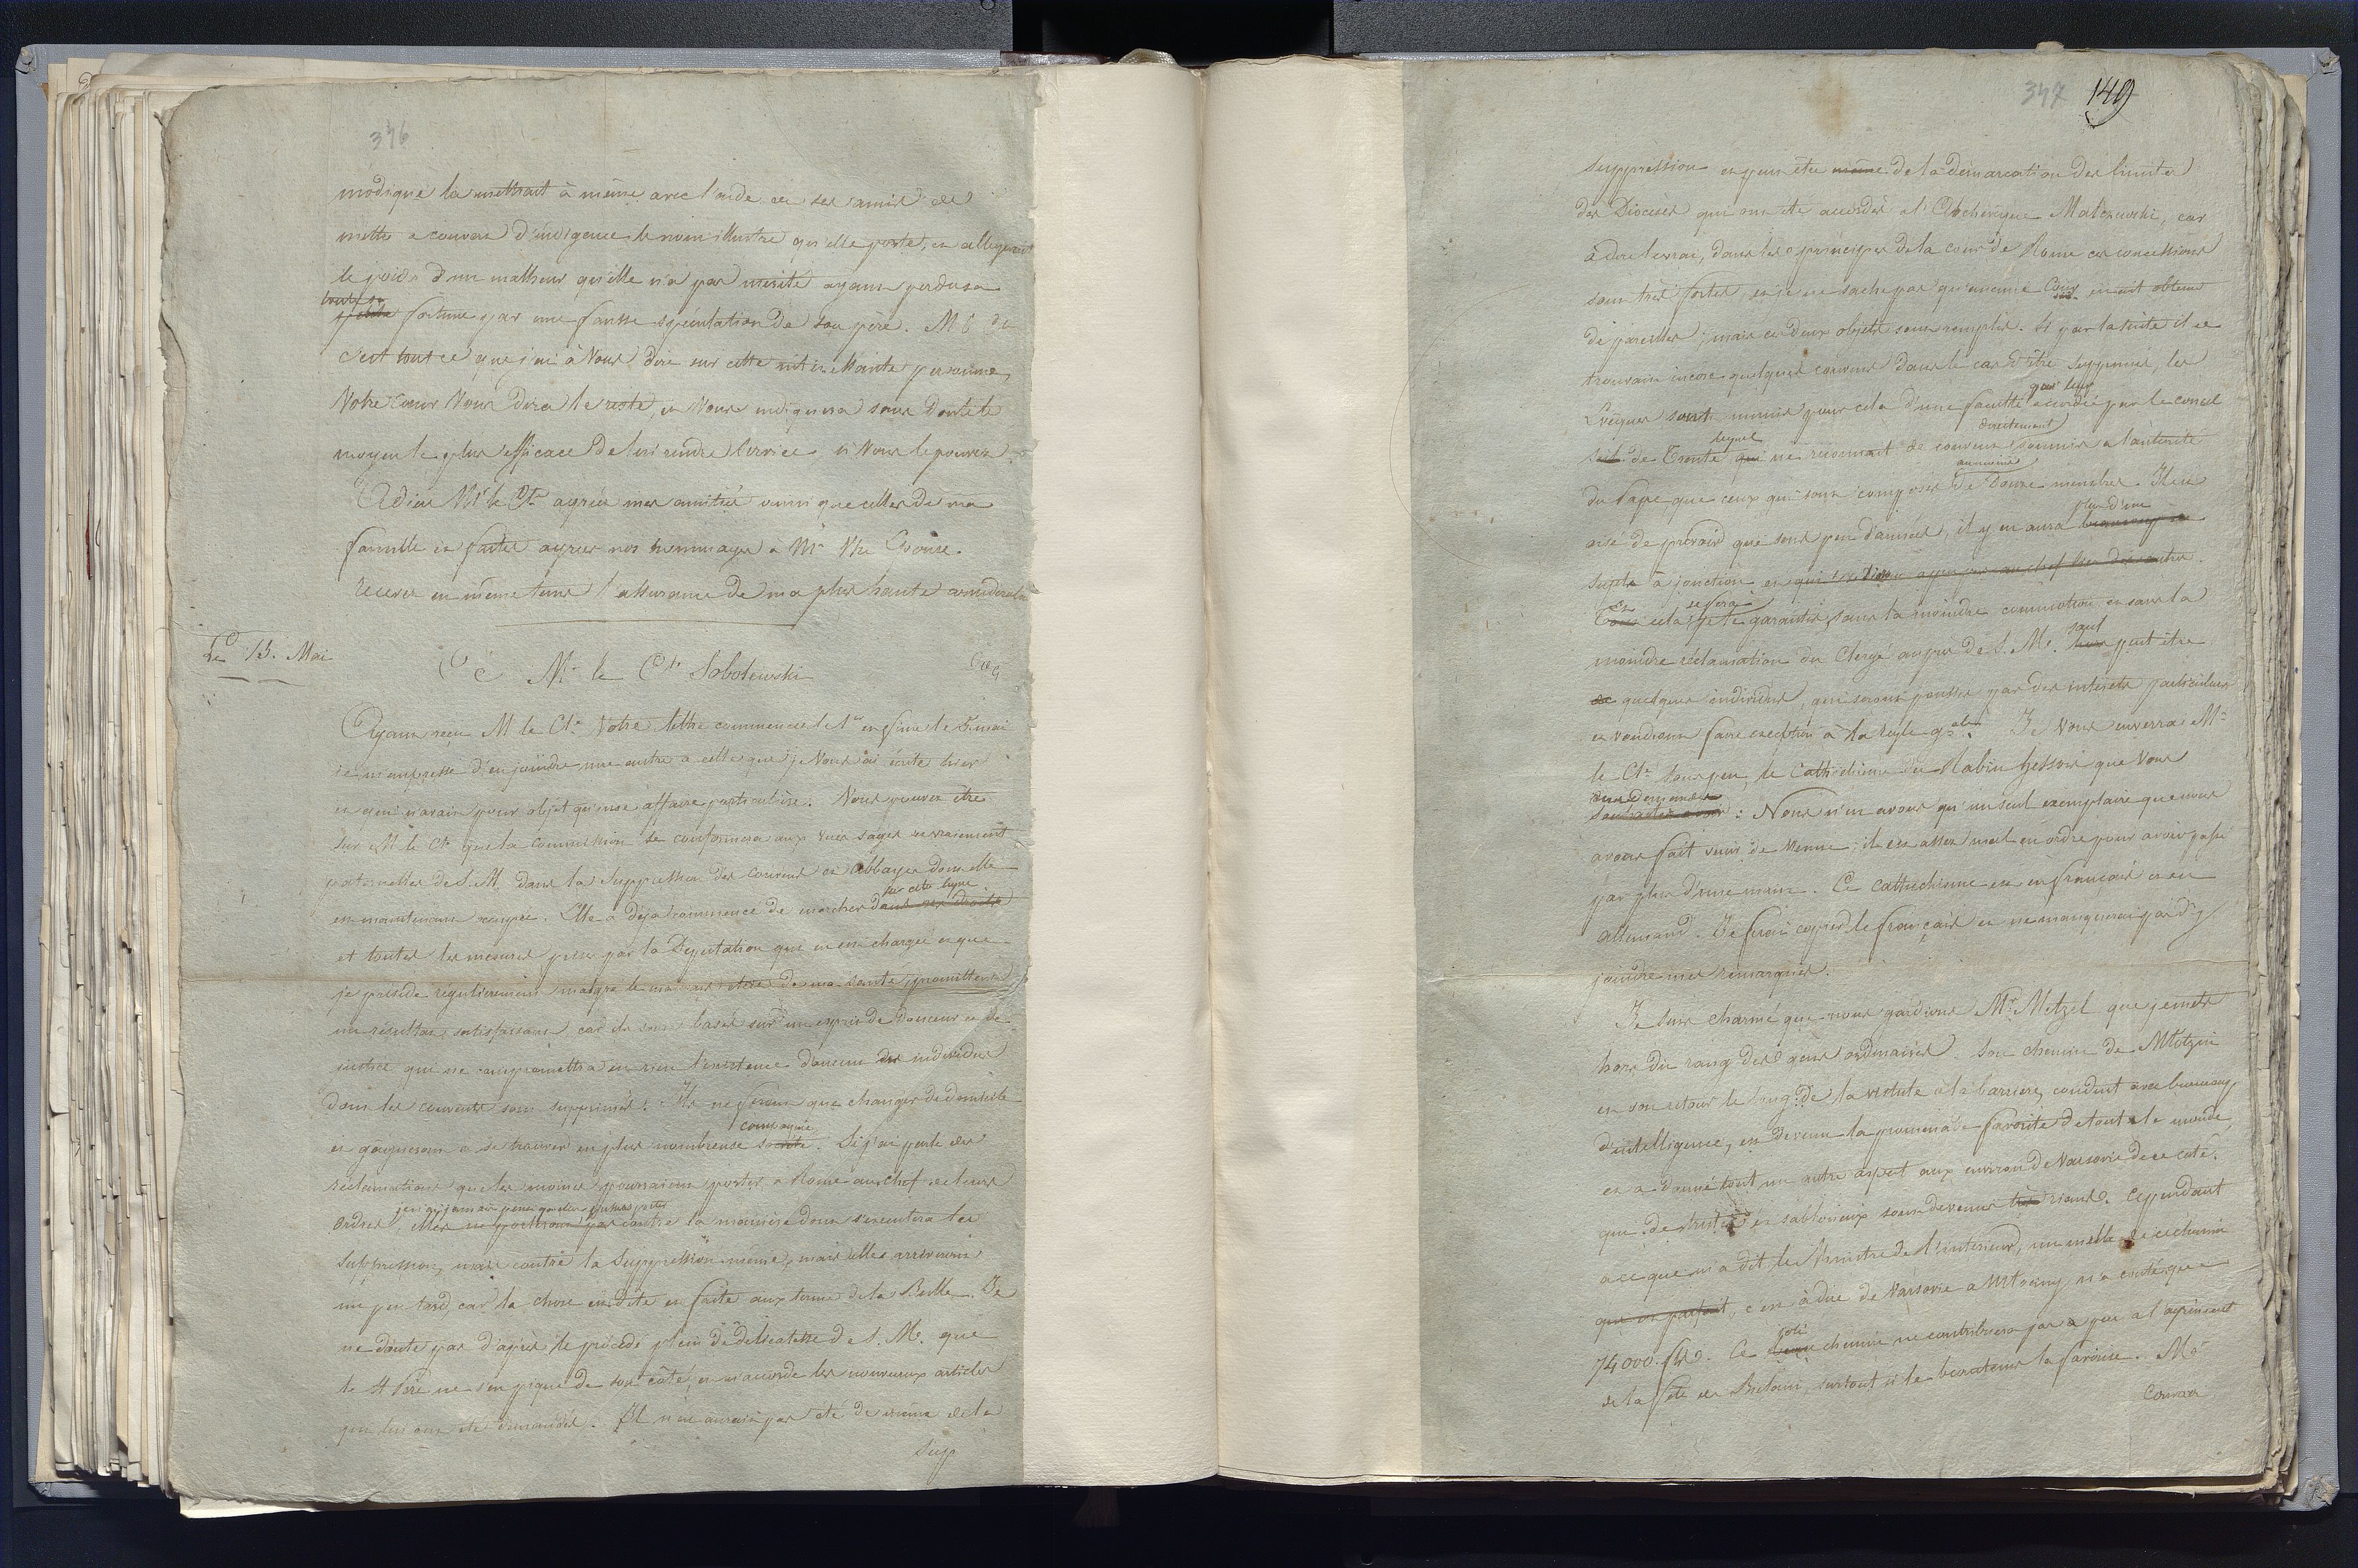 346
modique la mettrait à même avec l'aide de ses amis de
mettre a couvert d'indigence le nom illustre qu'elle porte, et allegerait
le poids d'un malheur qu'elle n'a pas merité ayant perdu sa
toute sa
petite fortune par une fausse spéculation de son père.
c'est tout ce que j'ai à Vous dire sur cette intéressante personne,
Votre cœur Vous dira le reste, et Vous indiquera sans doute le
moyen le plus efficace de lui rendre service, si Vous le pouvez.
Adieu Mr le Cte agréez mes amitiés ainsi que celles de ma
famille et faites agréer nos hommages à Me Vtre Epouse.
recevez en même tems l'assurance de ma plus haute consideration
Le 13. Mai
à Mr le Cte Sobolewski
Ayant reçu M le Cte Votre lettre commencée le 1er et finie le 5 mai
je m'empresse d'en joindre une autre a celle que je Vous ai écrite hier
et qui n'avait pour objet qu'une affaire particulière. Vous pouvez être
sur M le Cte que la commission se conformera aux vues sages et vraiement
paternelles de S. M. dans la suppression des couvens et abbayes dont elle
sur cette ligne
est maintenant occupée. Elle a déja commencé de marcher dans
et toutes les mesures prises par la Deputation qui en est chargée et que
je préside régulierement malgré le mauvais état de ma santé, promettent
un résultat satisfaisant, car ils sont basés sur un esprit de douceur et de
justice qui ne compromettra en rien l'existence d'aucun des individus
dont les couvents sont supprimés. Ils ne feront que changer de domicile
compagnie
et gagneront a se trouver en plus nombreuse societé. Si j'ai parlé des
réclamations que les moines pourraient porter a Rome au chef de leurs
je n'ai jamais pensé qu'elles fussent portées
ordres, elles ne porteront pas contre la maniere dont s'executera les
suppression, mais contre la Suppression même, mais elles arriveront
un peu tard, car la chose est dite et faite aux termes de la Bulle. Je
ne doute pas d'après le procédé plein de délicatesse de S. M. que
le St Père ne s'en pique de son côté, et n'accorde les nouveaux articles
qui lui ont été demandés. Il n'en aurait pas été de même de la
Sup
347 149
suppression et peut être même de la démarcation des limites
des Dioceses qui ont été accordés a l'Archevêque Malczewski, car
à dire le vrai, dans les principes de la cour de Rome ces concessions
sont très fortes, et je ne sache pas qu'aucune Cour en ait obtenu
de pareilles; mais ces deux objets sont remplis. Si par la suite il se
trouvait encore quelques couvens dans le cas d'être supprimés, les
qui leur
Evêques sont munis pour cela d'une faculté accordée par le concil
lequel directement
de Trente qui ne reconnait de couvens soumis a l'autorité
au moins
du Pape que ceux qui sont composés de Douze membres. Il est
plus d'un
aisé de prévoir que sous peu d'années, il y en aura beaucoup
sujets à jonction et qui
Et se fera
Tout cela je le garantis, sans la moindre commotion et sans la
sauf
moindre réclamation du Clergé auprès de S. M. hors peut être
de quelques individus, qui seront poussés par des interets particuliers
et voudront faire exception à la regle gale. Je Vous enverrai Mr
le Cte sous peu, le Cathéchisme du Rabin que Vous
me demandez
souhaitez avoir: Nous n'en avons qu'un seul exemplaire que nous
avons fait venir de Vienne; il est assez mal en ordre pour avoir passé
par plus d'une main. Ce cathéchisme est en français et en
allemand. Je ferai copier le français et ne manquerai pas d'y
joindre mes remarques.
Je suis charmé que nous gardions Mr Metzel que je mets
hors du rang des gens ordinaires. Son chemin de Mlocyn
et son retour le long de la vistule a la barriere, conduit avec beaucoup
d'intelligence, est devenu la promenade favorite de tout le monde,
et a donné tout un autre aspect aux environs de Varsovie de ce côté.
qui de tristes et sabloneux sont devenus très riants. Cependant
a ce que m'a dit le Ministre de l'interieur, un mille de ce chemin
qui est parfait, c'est à dire de Varsovie a Mlociny, n'a couté que
joli
74000 fl. Ce beau chemin ne contribuera pas a peu a l'agrément
de la fête de Bielani, surtout si le beau tems la favorise. Mr